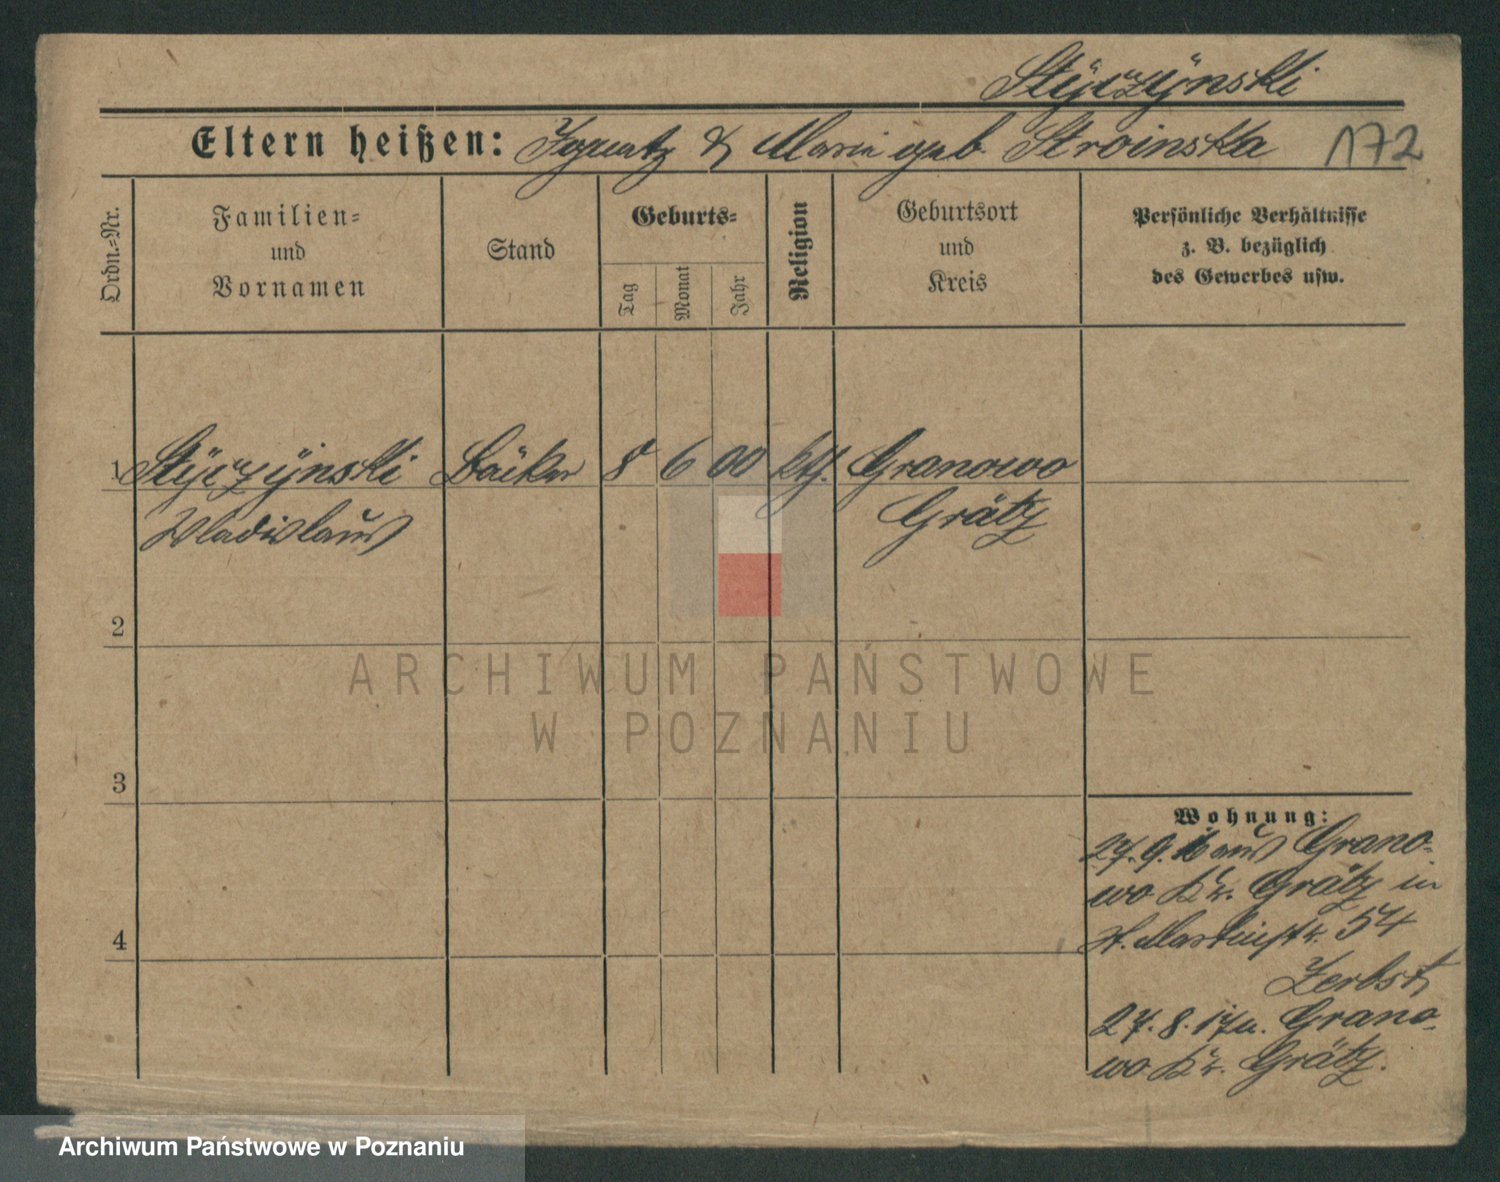 Styczynski
Eltern heißen: Ignatz & Maria geb. Stroinska 172
Ordn.-Nr.
Familien-
und
Vornamen
Stand
Geburts-
Tag
Monat
Jahr
Religion
Geburtsort
und
Kreis
Persönliche Verhältnisse
z. B. bezüglich
des Gewerbes usw.
1 Styczynski Bäcker 8 6 00 kth. Granowo
Wladislaus Grätz
2
3
4
Wohnung:
27.9.16 aus Grano-
wo Kr. Grätz in
St. Martinstr. 54
Zerbst
27.8.17 n. Grano-
wo Kr. Grätz.
ARCHIWUM PAŃSTWOWE
W POZNANIU
Archiwum Państwowe w Poznaniu